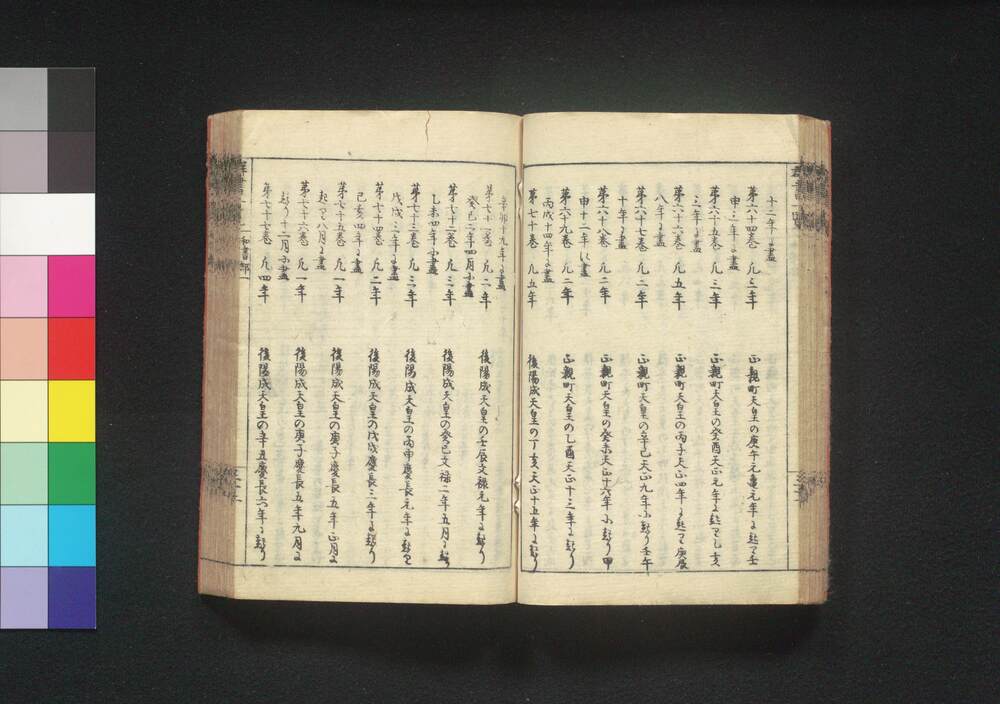 十二年に盡
第六十四卷　凡三年　正親町天皇の庚午元龜元年に起て壬
申三年に盡
第六十五卷　凡三年　正親町天皇の癸酉天正元年に起て乙亥
三年に盡
第六十六卷　凡五年　正親町天皇の丙子天正四年に起て庚辰
八年に盡
第六十七卷　凡二年　正親町天皇の辛巳天正九年に起り壬午
十年に盡
第六十八卷　凡二年　正親町天皇の癸未天正十六年に起り甲
申十二年に盡
第六十九卷　凡二年　正親町天皇の乙酉天正十三年に起り
丙戌十四年に盡
第七十卷　凡五年　後陽成天皇の丁亥天正十五年に起り
辛卯十九年に盡
第七十一卷　凡二年　後陽成天皇の壬辰文禄元年に起り
癸巳二年四月に盡
第七十二卷　凡三年　後陽成天皇の癸巳文禄二年五月に起り
乙未四年に盡
第七十三卷　凡三年　後陽成天皇の丙申慶長元年に起て
戊戌三年に盡
第七十四卷　凡二年　後陽成天皇の戊戌慶長三年に起り
己亥四年に盡
第七十五卷　凡一年　後陽成天皇の庚子慶長五年正月に
起て八月に盡
第七十六卷　凡一年　後陽成天皇の庚子慶長五年九月に
起り十二月に盡
第七十七卷　凡四年　後陽成天皇の辛丑慶長六年に起り
和書部